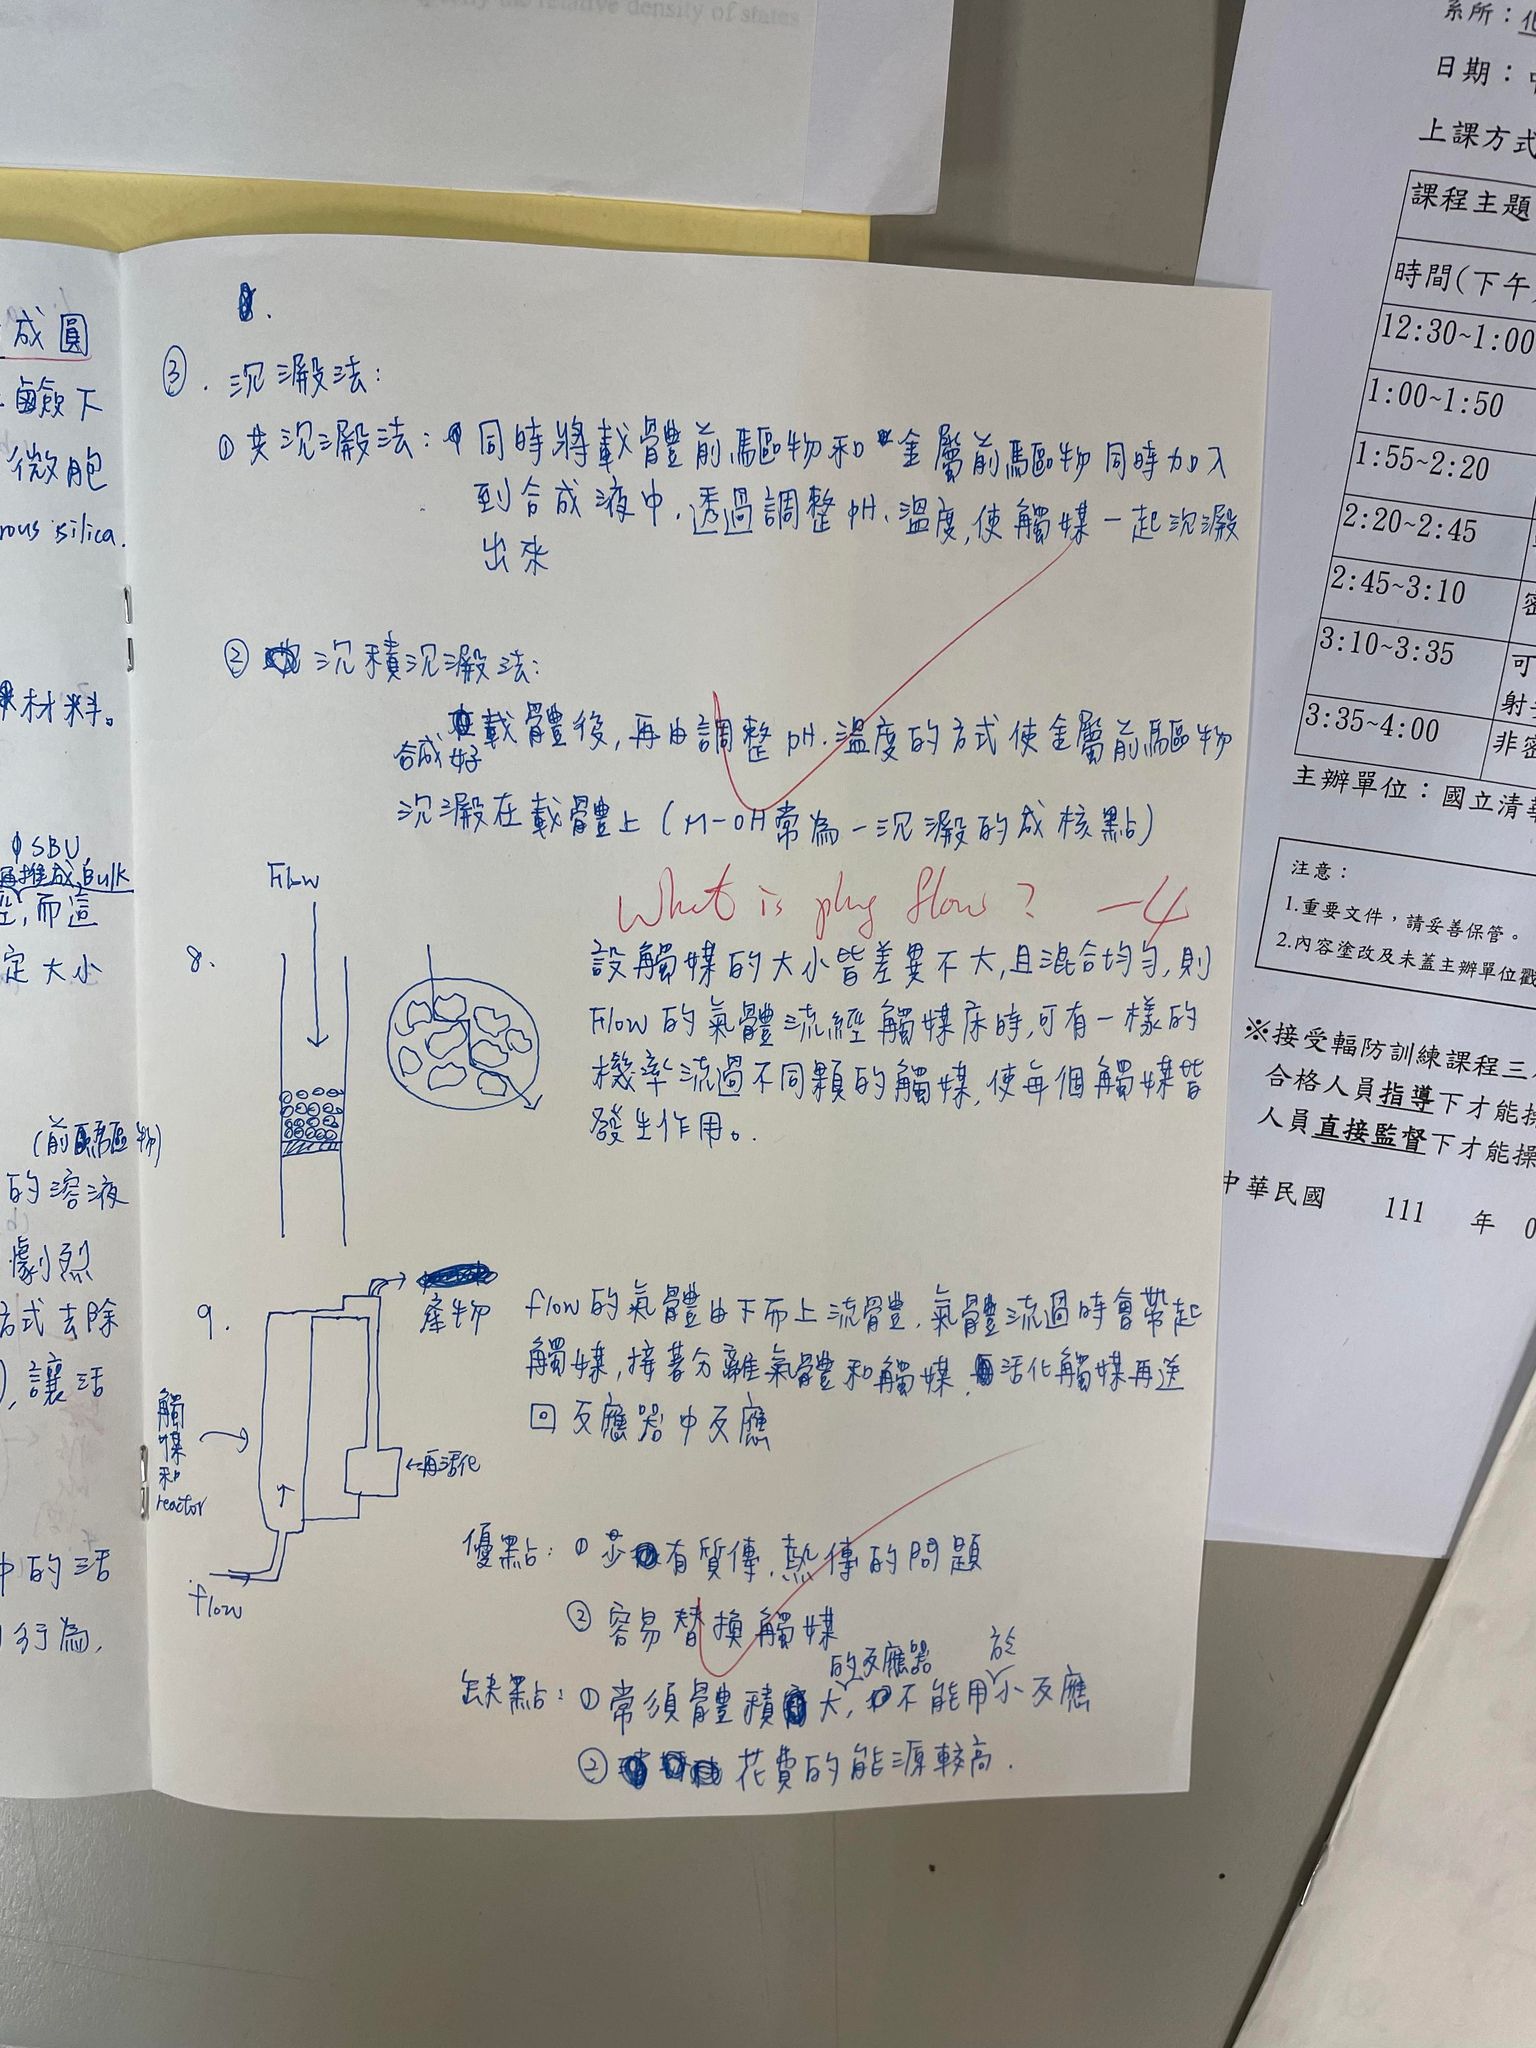 why the relative density of states
成圓
鹼下
微胞
rous silica.
材料。
SBU
堆成 Bulk
,而這
定大小
(前驅物)
的溶液
劇烈
方式去除
),讓活
中的活
行為,
8.
③. 沉澱法:
① 共沉澱法: 同時將載體前驅物和金屬前驅物同時加入
到合成液中.透過調整pH.溫度,使觸媒一起沉澱
出來
② 沉積沉澱法:
合成好載體後,再由調整pH.溫度的方式使金屬前驅物
沉澱在載體上(M-OH常為一沉澱的成核點)
What is plug flow? -4
8.
Flow
設觸媒的大小皆差異不大,且混合均勻,則
Flow的氣體流經觸媒床時,可有一樣的
機率流過不同顆的觸媒,使每個觸媒皆
發生作用。
9.
產物
觸媒和reactor
←再活化
flow
flow的氣體由下而上流體.氣體流過時會帶起
觸媒,接著分離氣體和觸媒,活化觸媒再送
回反應器中反應
優點: ① 少有質傳.熱傳的問題
② 容易替換觸媒
缺點: ① 常須體積大的反應器,不能用於小反應
② 花費的能源較高.
系所:化
日期:中
上課方式
課程主題
時間(下午
12:30~1:00
1:00~1:50
1:55~2:20
2:20~2:45
2:45~3:10 密
3:10~3:35 可
射
3:35~4:00 非密
主辦單位:國立清華
注意:
1.重要文件,請妥善保管。
2.內容塗改及未蓋主辦單位戳
※接受輻防訓練課程三
合格人員指導下才能操
人員直接監督下才能操
中華民國 111 年 0